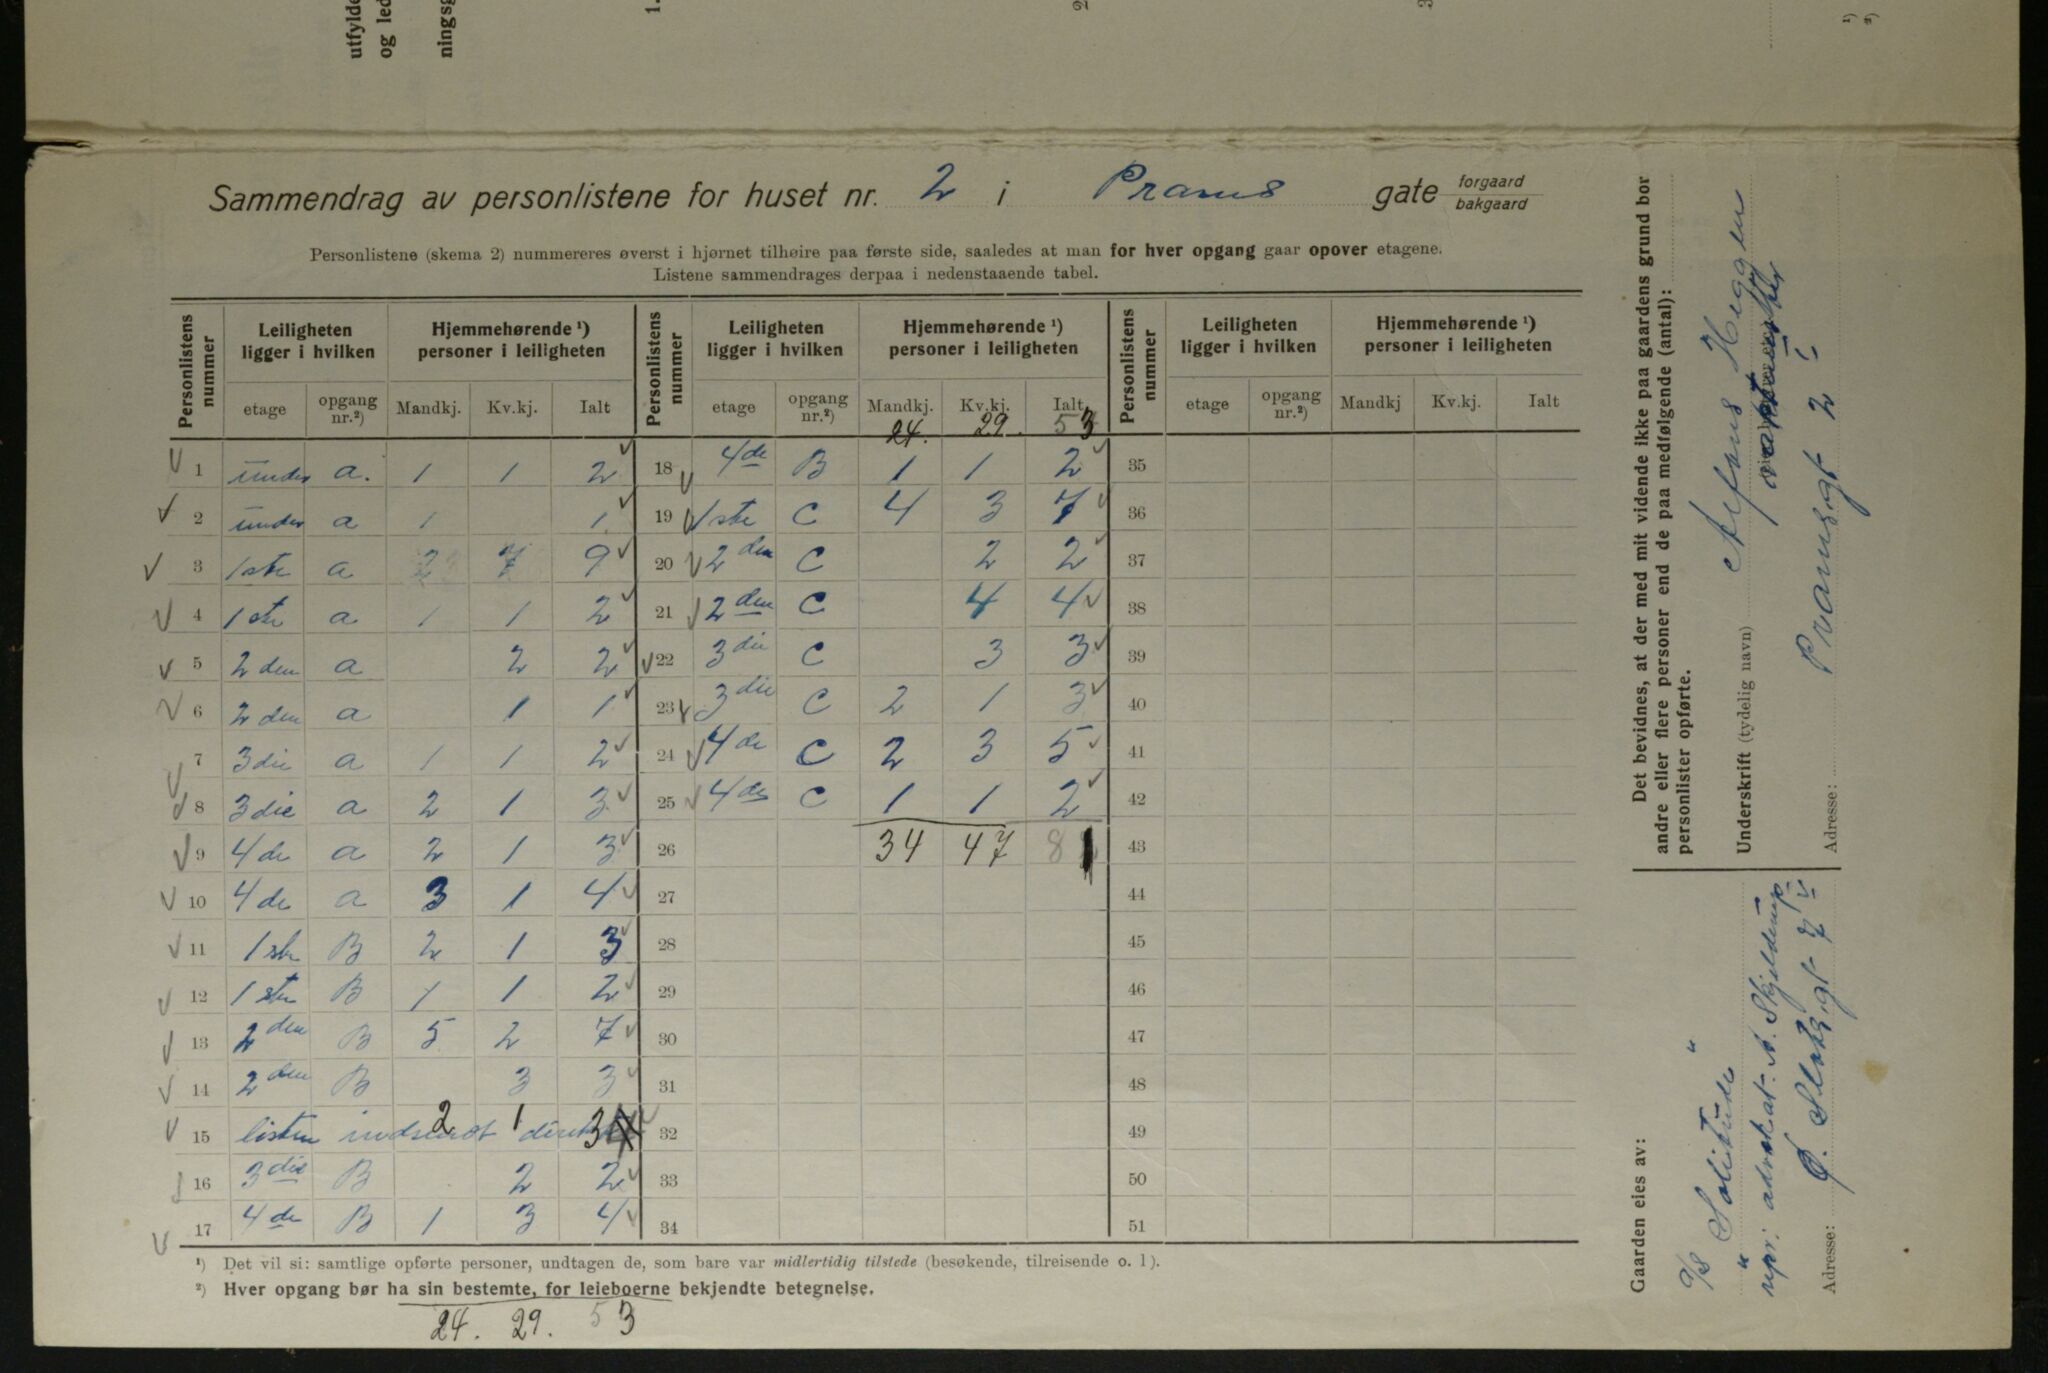 utfylde
og led
ningsg
1.
2
3
1)
2)
Sammendrag av personlistene for huset nr. 2 i Prams gate forgaard bakgaard
Personlistene (skema 2) nummereres øverst i hjørnet tilhøire paa første side, saaledes at man for hver opgang gaar opover etagene.
Listene sammendrages derpaa i nedenstaaende tabel.
Personlistens nummer | Leiligheten ligger i hvilken | Hjemmehørende ¹) personer i leiligheten | Personlistens nummer | Leiligheten ligger i hvilken | Hjemmehørende ¹) personer i leiligheten | Personlistens nummer | Leiligheten ligger i hvilken | Hjemmehørende ¹) personer i leiligheten
etage | opgang nr.²) | Mandkj. | Kv.kj. | Ialt | etage | opgang nr.²) | Mandkj. | Kv.kj. | Ialt | etage | opgang nr.²) | Mandkj | Kv.kj. | Ialt
24. 29. 53
1 under a. 1 1 2 | 18 4de B 1 1 2 | 35
2 under a 1 1 | 19 1ste C 4 3 7 | 36
3 1ste a 2 7 9 | 20 2den C 2 2 | 37
4 1ste a 1 1 2 | 21 2den C 4 4 | 38
5 2den a 2 2 | 22 3die C 3 3 | 39
6 2den a 1 1 | 23 3die C 2 1 3 | 40
7 3die a 1 1 2 | 24 4de C 2 3 5 | 41
8 3die a 2 1 3 | 25 4de C 1 1 2 | 42
9 4de a 2 1 3 | 26 34 47 81 | 43
10 4de a 3 1 4 | 27 | 44
11 1ste B 2 1 3 | 28 | 45
12 1ste B 1 1 2 | 29 | 46
13 2den B 5 2 7 | 30 | 47
14 2den B 3 3 | 31 | 48
15 listen indsendt direkte 2 1 3 | 32 | 49
16 3die B 2 2 | 33 | 50
17 4de B 1 3 4 | 34 | 51
¹) Det vil si: samtlige opførte personer, undtagen de, som bare var midlertidig tilstede (besøkende, tilreisende o. l).
²) Hver opgang bør ha sin bestemte, for leieboerne bekjendte betegnelse.
24. 29. 53
Det bevidnes, at der med mit vidende ikke paa gaardens grund bor
andre eller flere personer end de paa medfølgende (antal):
personlister opførte.
Underskrift (tydelig navn) Alfons Heggen
vaktmester
Adresse: Pramsgt 2
Gaarden eies av:
A/S "Solitude"
repr: advokat A. Skjelderup
Adresse: Ø. Slotsgt 7